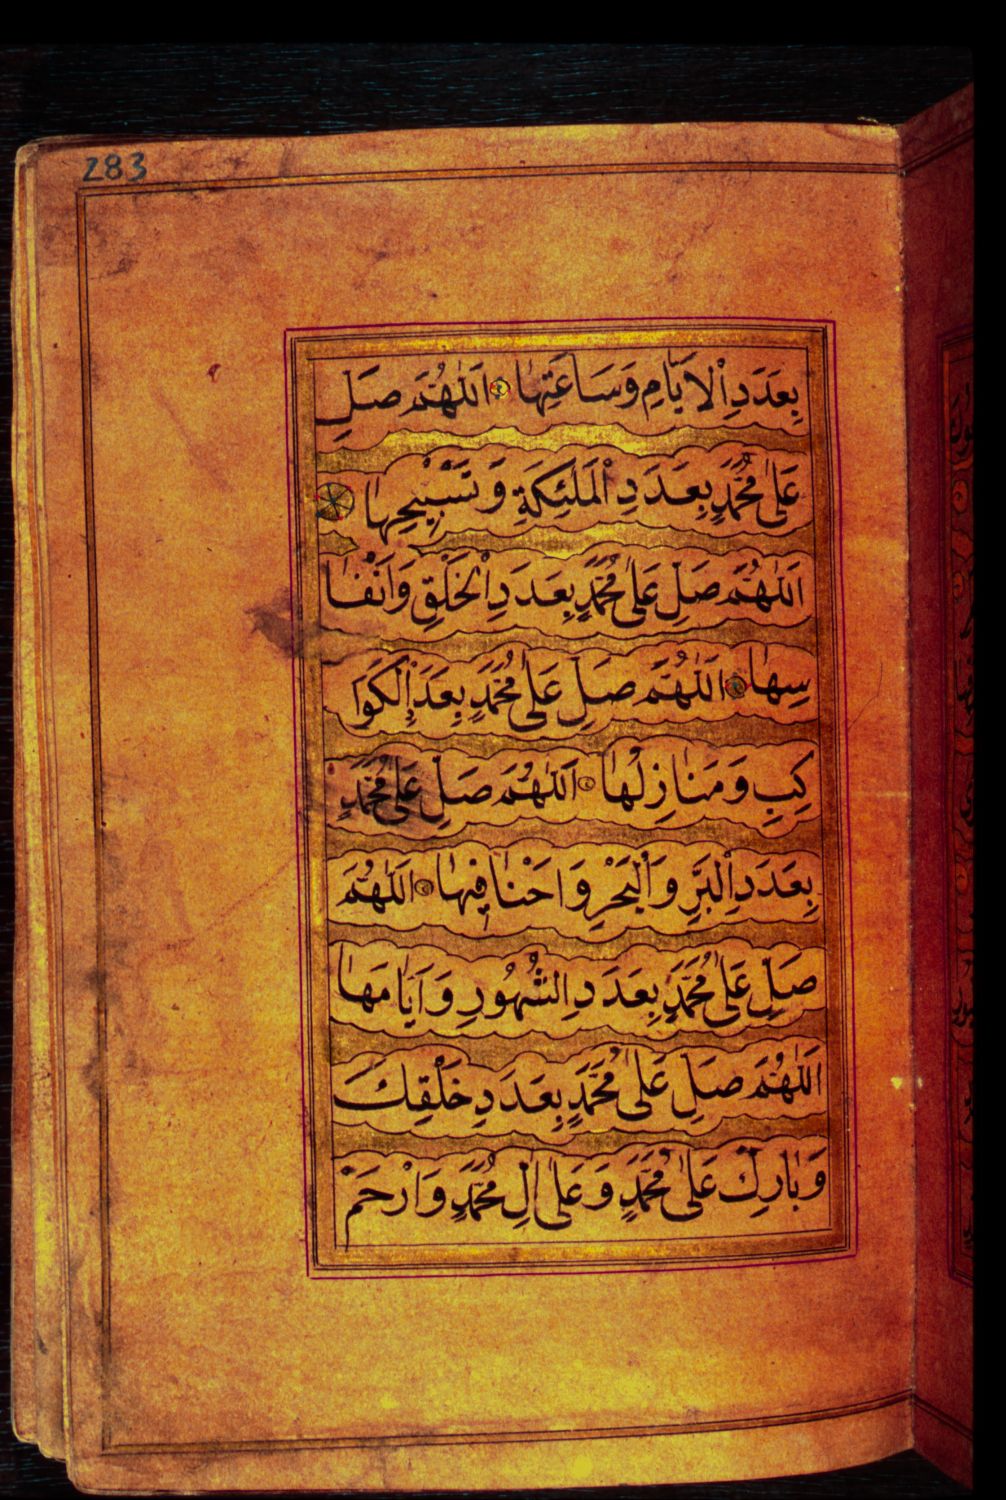 283
بِعَدَدِ اْلاَيَّامِ وَسَاعَتِهَا اَللّٰهُمَّ صَلِّ
عَلٰى مُحَمَّدٍ بِعَدَدِ اْلمَلٰئِكَةِ وَتَسْبِيْحِهَا
اَللّٰهُمَّ صَلِّ عَلٰى مُحَمَّدٍ بِعَدَدِ اْلخَلْقِ وَاَنْفَا
سِهَا اَللّٰهُمَّ صَلِّ عَلٰى مُحَمَّدٍ بِعَدَدِ اْلكَوَا
كِبِ وَمَنَازِلِهَا اَللّٰهُمَّ صَلِّ عَلٰى مُحَمَّدٍ
بِعَدَدِ اْلبَرِّ وَاْلبَحْرِ وَ فِيْهَا اَللّٰهُمَّ
صَلِّ عَلٰى مُحَمَّدٍ بِعَدَدِ الشُّهُورِ وَاَيَّامِهَا
اَللّٰهُمَّ صَلِّ عَلٰى مُحَمَّدٍ بِعَدَدِ خَلْقِكَ
وَبَارِكْ عَلٰى مُحَمَّدٍ وَعَلٰى اٰلِ مُحَمَّدٍ وَارْحَمْ